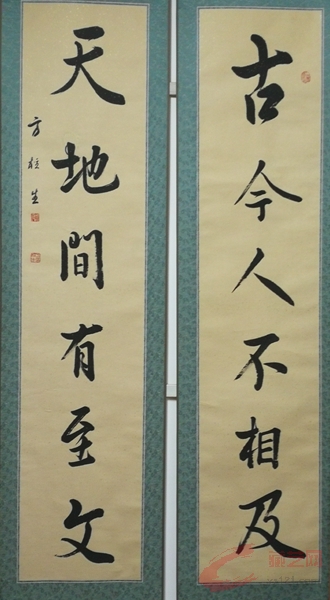 古今人不相及
天地間有至文
方桂生